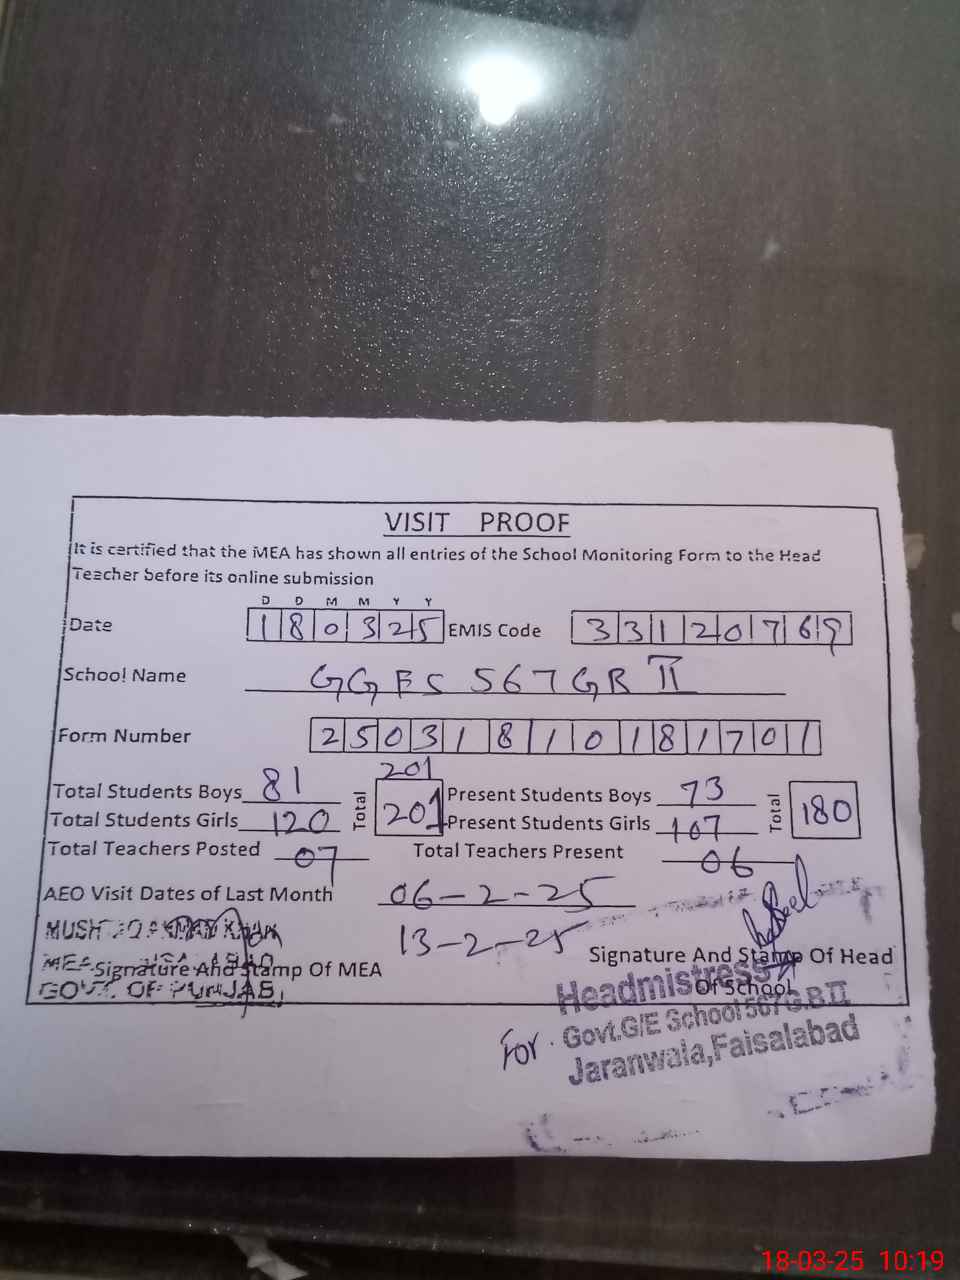 VISIT PROOF
It is certified that the MEA has shown all entries of the School Monitoring Form to the Head
Teacher before its online submission
D D M M Y Y
Date 180325 EMIS Code 33120769
School Name GGES 567 GB II
Form Number 25031810181701
201
Total Students Boys 81 Total 201 Present Students Boys 73 Total 180
Total Students Girls 120 Present Students Girls 107
Total Teachers Posted 07 Total Teachers Present 06
AEO Visit Dates of Last Month 06-2-25
13-2-25
MUSHTAQ AHMAD KHAN
MEA
Signature And Stamp Of MEA
GOVT. OF PUNJAB
Signature And Stamp Of Head
Of School
Headmistress
For. Govt.G/E School 567 G.B II
Jaranwala,Faisalabad
18-03-25 10:19